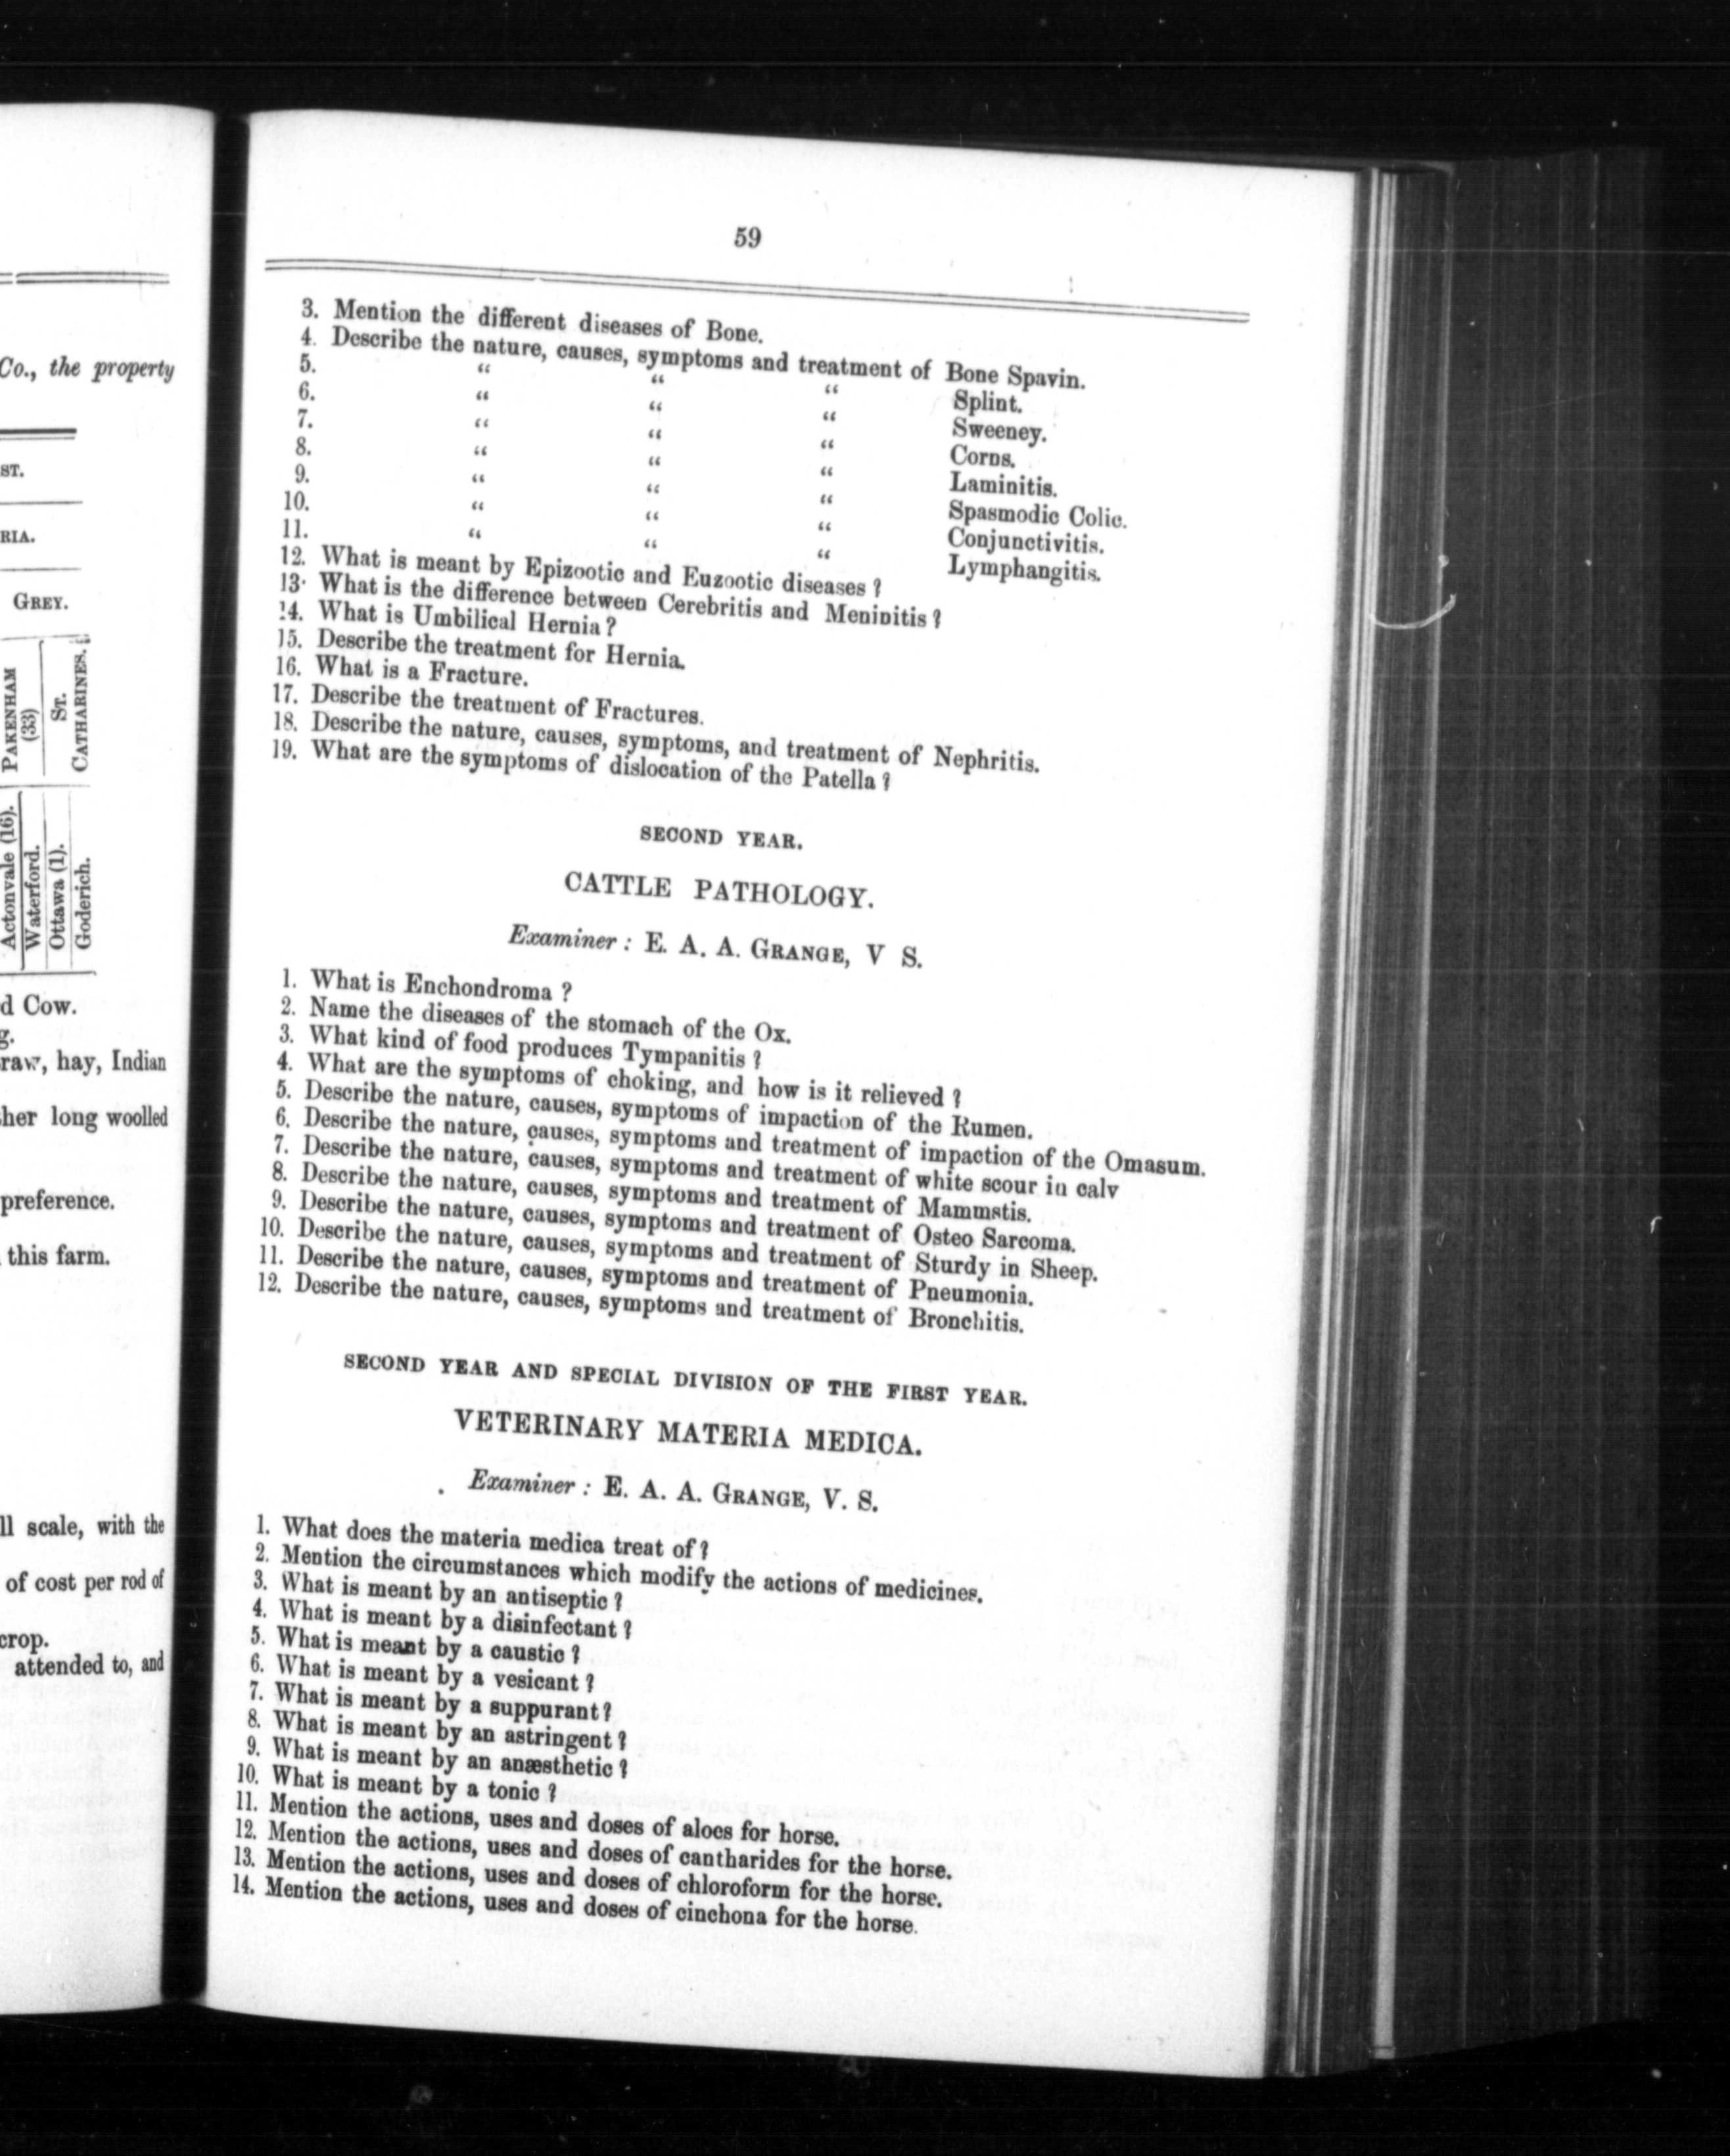 Co., the property
ST.
RIA.
GREY.
PAKENHAM
(33)
ST.
CATHARINES.
Actonvale (16).
Waterford.
Ottawa (1).
Goderich.
d Cow.
g.
raw, hay, Indian
her long woolled
preference.
this farm.
ll scale, with the
of cost per rod of
crop.
attended to, and
59
3. Mention the different diseases of Bone.
4. Describe the nature, causes, symptoms and treatment of Bone Spavin.
5. “ “ “ Splint.
6. “ “ “ Sweeney.
7. “ “ “ Corns.
8. “ “ “ Laminitis.
9. “ “ “ Spasmodic Colic.
10. “ “ “ Conjunctivitis.
11. “ “ “ Lymphangitis.
12. What is meant by Epizootic and Euzootic diseases ?
13· What is the difference between Cerebritis and Meninitis ?
14. What is Umbilical Hernia ?
15. Describe the treatment for Hernia.
16. What is a Fracture.
17. Describe the treatment of Fractures.
18. Describe the nature, causes, symptoms, and treatment of Nephritis.
19. What are the symptoms of dislocation of the Patella ?
SECOND YEAR.
CATTLE PATHOLOGY.
Examiner : E. A. A. GRANGE, V S.
1. What is Enchondroma ?
2. Name the diseases of the stomach of the Ox.
3. What kind of food produces Tympanitis ?
4. What are the symptoms of choking, and how is it relieved ?
5. Describe the nature, causes, symptoms of impaction of the Rumen.
6. Describe the nature, causes, symptoms and treatment of impaction of the Omasum.
7. Describe the nature, causes, symptoms and treatment of white scour in calv
8. Describe the nature, causes, symptoms and treatment of Mammstis.
9. Describe the nature, causes, symptoms and treatment of Osteo Sarcoma.
10. Describe the nature, causes, symptoms and treatment of Sturdy in Sheep.
11. Describe the nature, causes, symptoms and treatment of Pneumonia.
12. Describe the nature, causes, symptoms and treatment of Bronchitis.
SECOND YEAR AND SPECIAL DIVISION OF THE FIRST YEAR.
VETERINARY MATERIA MEDICA.
Examiner : E. A. A. GRANGE, V. S.
1. What does the materia medica treat of ?
2. Mention the circumstances which modify the actions of medicines.
3. What is meant by an antiseptic ?
4. What is meant by a disinfectant ?
5. What is meant by a caustic ?
6. What is meant by a vesicant ?
7. What is meant by a suppurant ?
8. What is meant by an astringent ?
9. What is meant by an anæsthetic ?
10. What is meant by a tonic ?
11. Mention the actions, uses and doses of aloes for horse.
12. Mention the actions, uses and doses of cantharides for the horse.
13. Mention the actions, uses and doses of chloroform for the horse.
14. Mention the actions, uses and doses of cinchona for the horse.